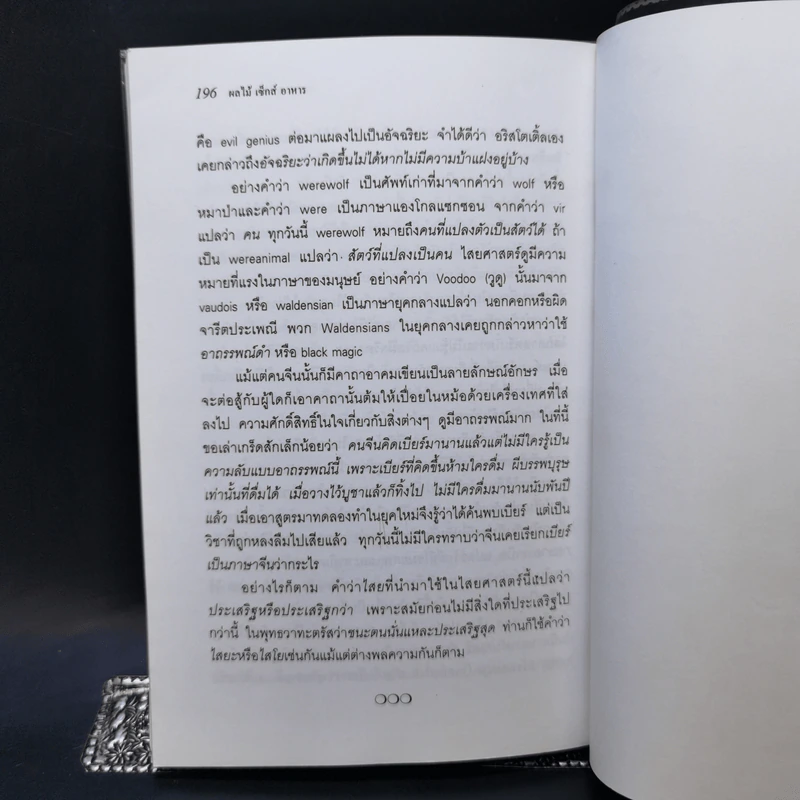 196 ผลไม้ เซ็กส์ อาหาร
คือ evil genius ต่อมาแผลงไปเป็นอัจฉริยะ จำได้ดีว่า อริสโตเติ้ลเอง
เคยกล่าวถึงอัจฉริยะว่าเกิดขึ้นไม่ได้หากไม่มีความบ้าแฝงอยู่บ้าง
อย่างคำว่า werewolf เป็นศัพท์เก่าที่มาจากคำว่า wolf หรือ
หมาป่าและคำว่า were เป็นภาษาแองโกลแซกซอน จากคำว่า vir
แปลว่า คน ทุกวันนี้ werewolf หมายถึงคนที่แปลงตัวเป็นสัตว์ได้ ถ้า
เป็น wereanimal แปลว่า สัตว์ที่แปลงเป็นคน ไสยศาสตร์ดูมีความ
หมายที่แรงในภาษาของมนุษย์ อย่างคำว่า Voodoo (วูดู) นั้นมาจาก
vaudois หรือ waldensian เป็นภาษายุคกลางแปลว่า นอกคอกหรือผิด
จารีตประเพณี พวก Waldensians ในยุคกลางเคยถูกกล่าวหาว่าใช้
อาถรรพณ์ดำ หรือ black magic
แม้แต่คนจีนนั้นก็มีคาถาอาคมเขียนเป็นลายลักษณ์อักษร เมื่อ
จะต่อสู้กับผู้ใดก็เอาคาถานั้นต้มให้เปื่อยในหม้อด้วยเครื่องเทศที่ใส่
ลงไป ความศักดิ์สิทธิ์ในใจเกี่ยวกับสิ่งต่างๆ ดูมีอาถรรพณ์มาก ในที่นี้
ขอเล่าเกร็ดสักเล็กน้อยว่า คนจีนคิดเบียร์มานานแล้วแต่ไม่มีใครรู้เป็น
ความลับแบบอาถรรพณ์นี้ เพราะเบียร์ที่คิดขึ้นห้ามใครดื่ม ผีบรรพบุรุษ
เท่านั้นที่ดื่มได้ เมื่อวางไว้บูชาแล้วก็ทิ้งไป ไม่มีใครดื่มมานานนับพันปี
แล้ว เมื่อเอาสูตรมาทดลองทำในยุคใหม่จึงรู้ว่าได้ค้นพบเบียร์ แต่เป็น
วิชาที่ถูกหลงลืมไปเสียแล้ว ทุกวันนี้ไม่มีใครทราบว่าจีนเคยเรียกเบียร์
เป็นภาษาจีนว่ากระไร
อย่างไรก็ตาม คำว่าไสยที่นำมาใช้ในไสยศาสตร์นี้แปลว่า
ประเสริฐหรือประเสริฐกว่า เพราะสมัยก่อนไม่มีสิ่งใดที่ประเสริฐไป
กว่านี้ ในพุทธวาทะตรัสว่าชนะตนนั่นแหละประเสริฐสุด ท่านก็ใช้คำว่า
ไสยะหรือไสโยเช่นกันแม้แต่ต่างพลความกันก็ตาม